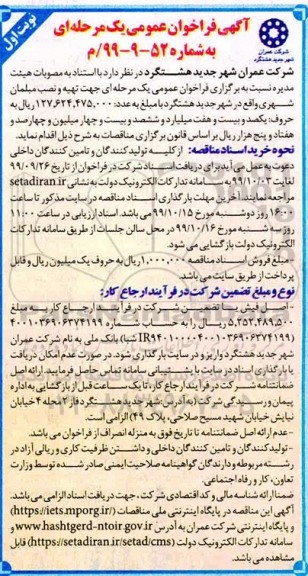 نوبت اول
شرکت عمران
شهر جدید هشتگرد
آگهی فراخوان عمومی یک مرحله‌ای
به شماره ۵۲-۹-۹۹/م
شرکت عمران شهر جدید هشتگرد در نظر دارد با استناد به مصوبات هیئت
مدیره نسبت به برگزاری فراخوان عمومی یک مرحله ای جهت تهیه و نصب مبلمان
شهری واقع در شهر جدید هشتگرد با مبلغ به عدد: ۱۲۷,۶۲۴,۴۷۵,۰۰۰ ریال به
حروف: یکصد و بیست و هفت میلیارد و ششصد و بیست و چهار میلیون و چهارصد و
هفتاد و پنج هزار ریال بر اساس قانون برگزاری مناقصات به شرح ذیل اقدام نماید.
نحوه خرید اسناد مناقصه: از کلیه تولید کنندگان و تامین کنندگان داخلی
دعوت به عمل می آید برای دریافت اسناد شرکت در فراخوان از تاریخ ۹۹/۰۹/۲۶
لغایت ۹۹/۱۰/۰۳ به سامانه تدارکات الکترونیک دولت به نشانی setadiran.ir
مراجعه نمایند. آخرین مهلت بارگذاری اسناد مناقصه در سایت مذکور تا ساعت
۱۶:۰۰ روز دوشنبه مورخ ۹۹/۱۰/۱۵ می باشد. اسناد ارزیابی در ساعت ۱۱:۰۰
روز سه شنبه مورخ ۹۹/۱۰/۱۶ در محل سالن جلسات از طریق سامانه تدارکات
الکترونیک دولت بازگشایی می شود.
-مبلغ فروش اسناد مناقصه ۱,۰۰۰,۰۰۰ ریال به حروف یک میلیون ریال و قابل
پرداخت از طریق سایت می باشد.
نوع و مبلغ تضمین شرکت در فرآیند ارجاع کار:
-اصل فیش یا تضمین شرکت در فرآیند ارجاع کار به مبلغ
۵,۳۵۲,۴۸۹,۵۰۰ ریال را به حساب شماره ۴۰۰۱۰۳۶۹۰۶۳۷۴۱۹۹
(شبا) بانک ملی به نام شرکت عمران
شهر جدید هشتگرد واریز و در سایت بارگذاری شود. در صورت عدم امکان دریافت
یا بارگذاری اسناد در سایت با پشتیبانی سامانه تماس حاصل فرمایید. ارائه اصل
ضمانتنامه شرکت در فرآیند ارجاع کار، تا یک ساعت قبل از بازگشایی به اداره
پیمان و رسیدگی شرکت (به آدرس شهر جدید هشتگرد فاز ۲ محله ۴ خیابان
نیایش خیابان شهید مسیح صالحی، پلاک ۴۹) الزامی است.
-عدم ارائه اصل ضمانتنامه تا تاریخ فوق به منزله انصراف از فراخوان می باشد.
-تولید کنندگان و تامین کنندگان داخلی و داشتن ظرفیت کاری و ریالی آزاد در
رشته مربوطه و دارندگان گواهینامه صلاحیت ایمنی صادر شده توسط وزارت
تعاون، کار و رفاه اجتماعی.
ضمنا ارائه شناسه مالی و کد اقتصادی شرکت، جهت دریافت اسناد الزامی می باشد.
آگهی این مناقصه در پایگاه اینترنتی ملی مناقصات (https://iets.mporg.ir/)
و پایگاه اینترنتی شرکت عمران به آدرس www.hashtgerd-ntoir.gov.ir و
سامانه تدارکات الکترونیک دولت (https://setadiran.ir/setad/cms) قابل
مشاهده می باشد.